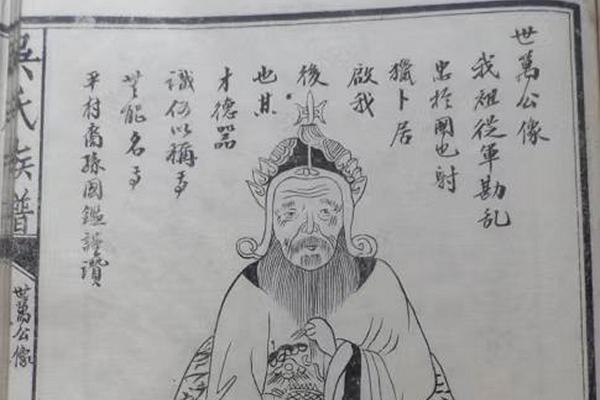 世萬公像
我祖從軍勘乱
忠於國也射
獵卜居
啟我
後
也其
才德器
識何以稱焉
無能名焉
平村裔孫國鑑謹讚
吳氏族譜
世萬公像